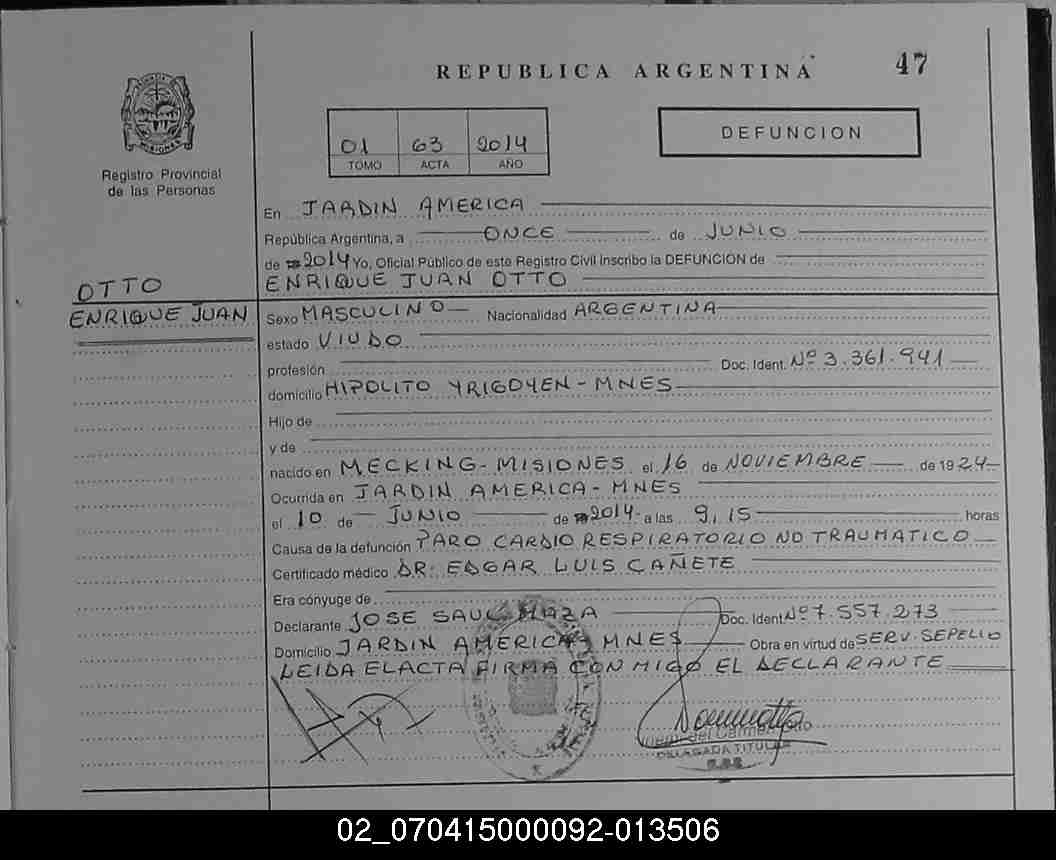 REPUBLICA ARGENTINA
47
01 63 2014
TOMO ACTA AÑO
DEFUNCION
Registro Provincial
de las Personas
En JARDIN AMERICA
República Argentina, a ONCE de JUNIO
de 2014 Yo, Oficial Público de este Registro Civil inscribo la DEFUNCION de
ENRIQUE JUAN OTTO
OTTO
ENRIQUE JUAN
Sexo MASCULINO Nacionalidad ARGENTINA
estado VIUDO
profesión Doc. Ident. Nº 3.361.941
domicilio HIPOLITO YRIGOYEN - MNES
Hijo de
y de
nacido en MECKING - MISIONES el 16 de NOVIEMBRE de 1924
Ocurrida en JARDIN AMERICA - MNES
el 10 de JUNIO de 2014 a las 9,15 horas
Causa de la defunción PARO CARDIO RESPIRATORIO NO TRAUMATICO
Certificado médico DR: EDGAR LUIS CAÑETE
Era cónyuge de
Declarante JOSE SAUL MAZA Doc. Ident Nº 7.557.273
Domicilio JARDIN AMERICA - MNES Obra en virtud de SERV. SEPELIO
LEIDA EL ACTA FIRMA CONMIGO EL DECLARANTE
del Carmen
DELEGADA TITULAR
02_070415000092-013506